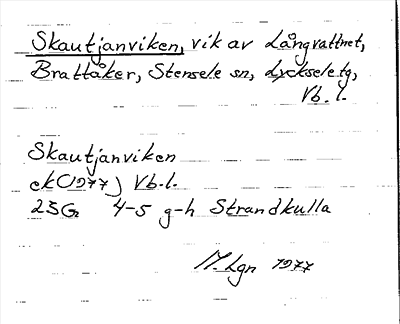 Skautjanviken, vik av Långvattnet,
Brattåker, Stensele sn, Lycksele tg,
Vb.l.
Skautjanviken
ek(1977) Vb.l.
23G 4-5 g-h Strandkulla
M.Lgn 1977